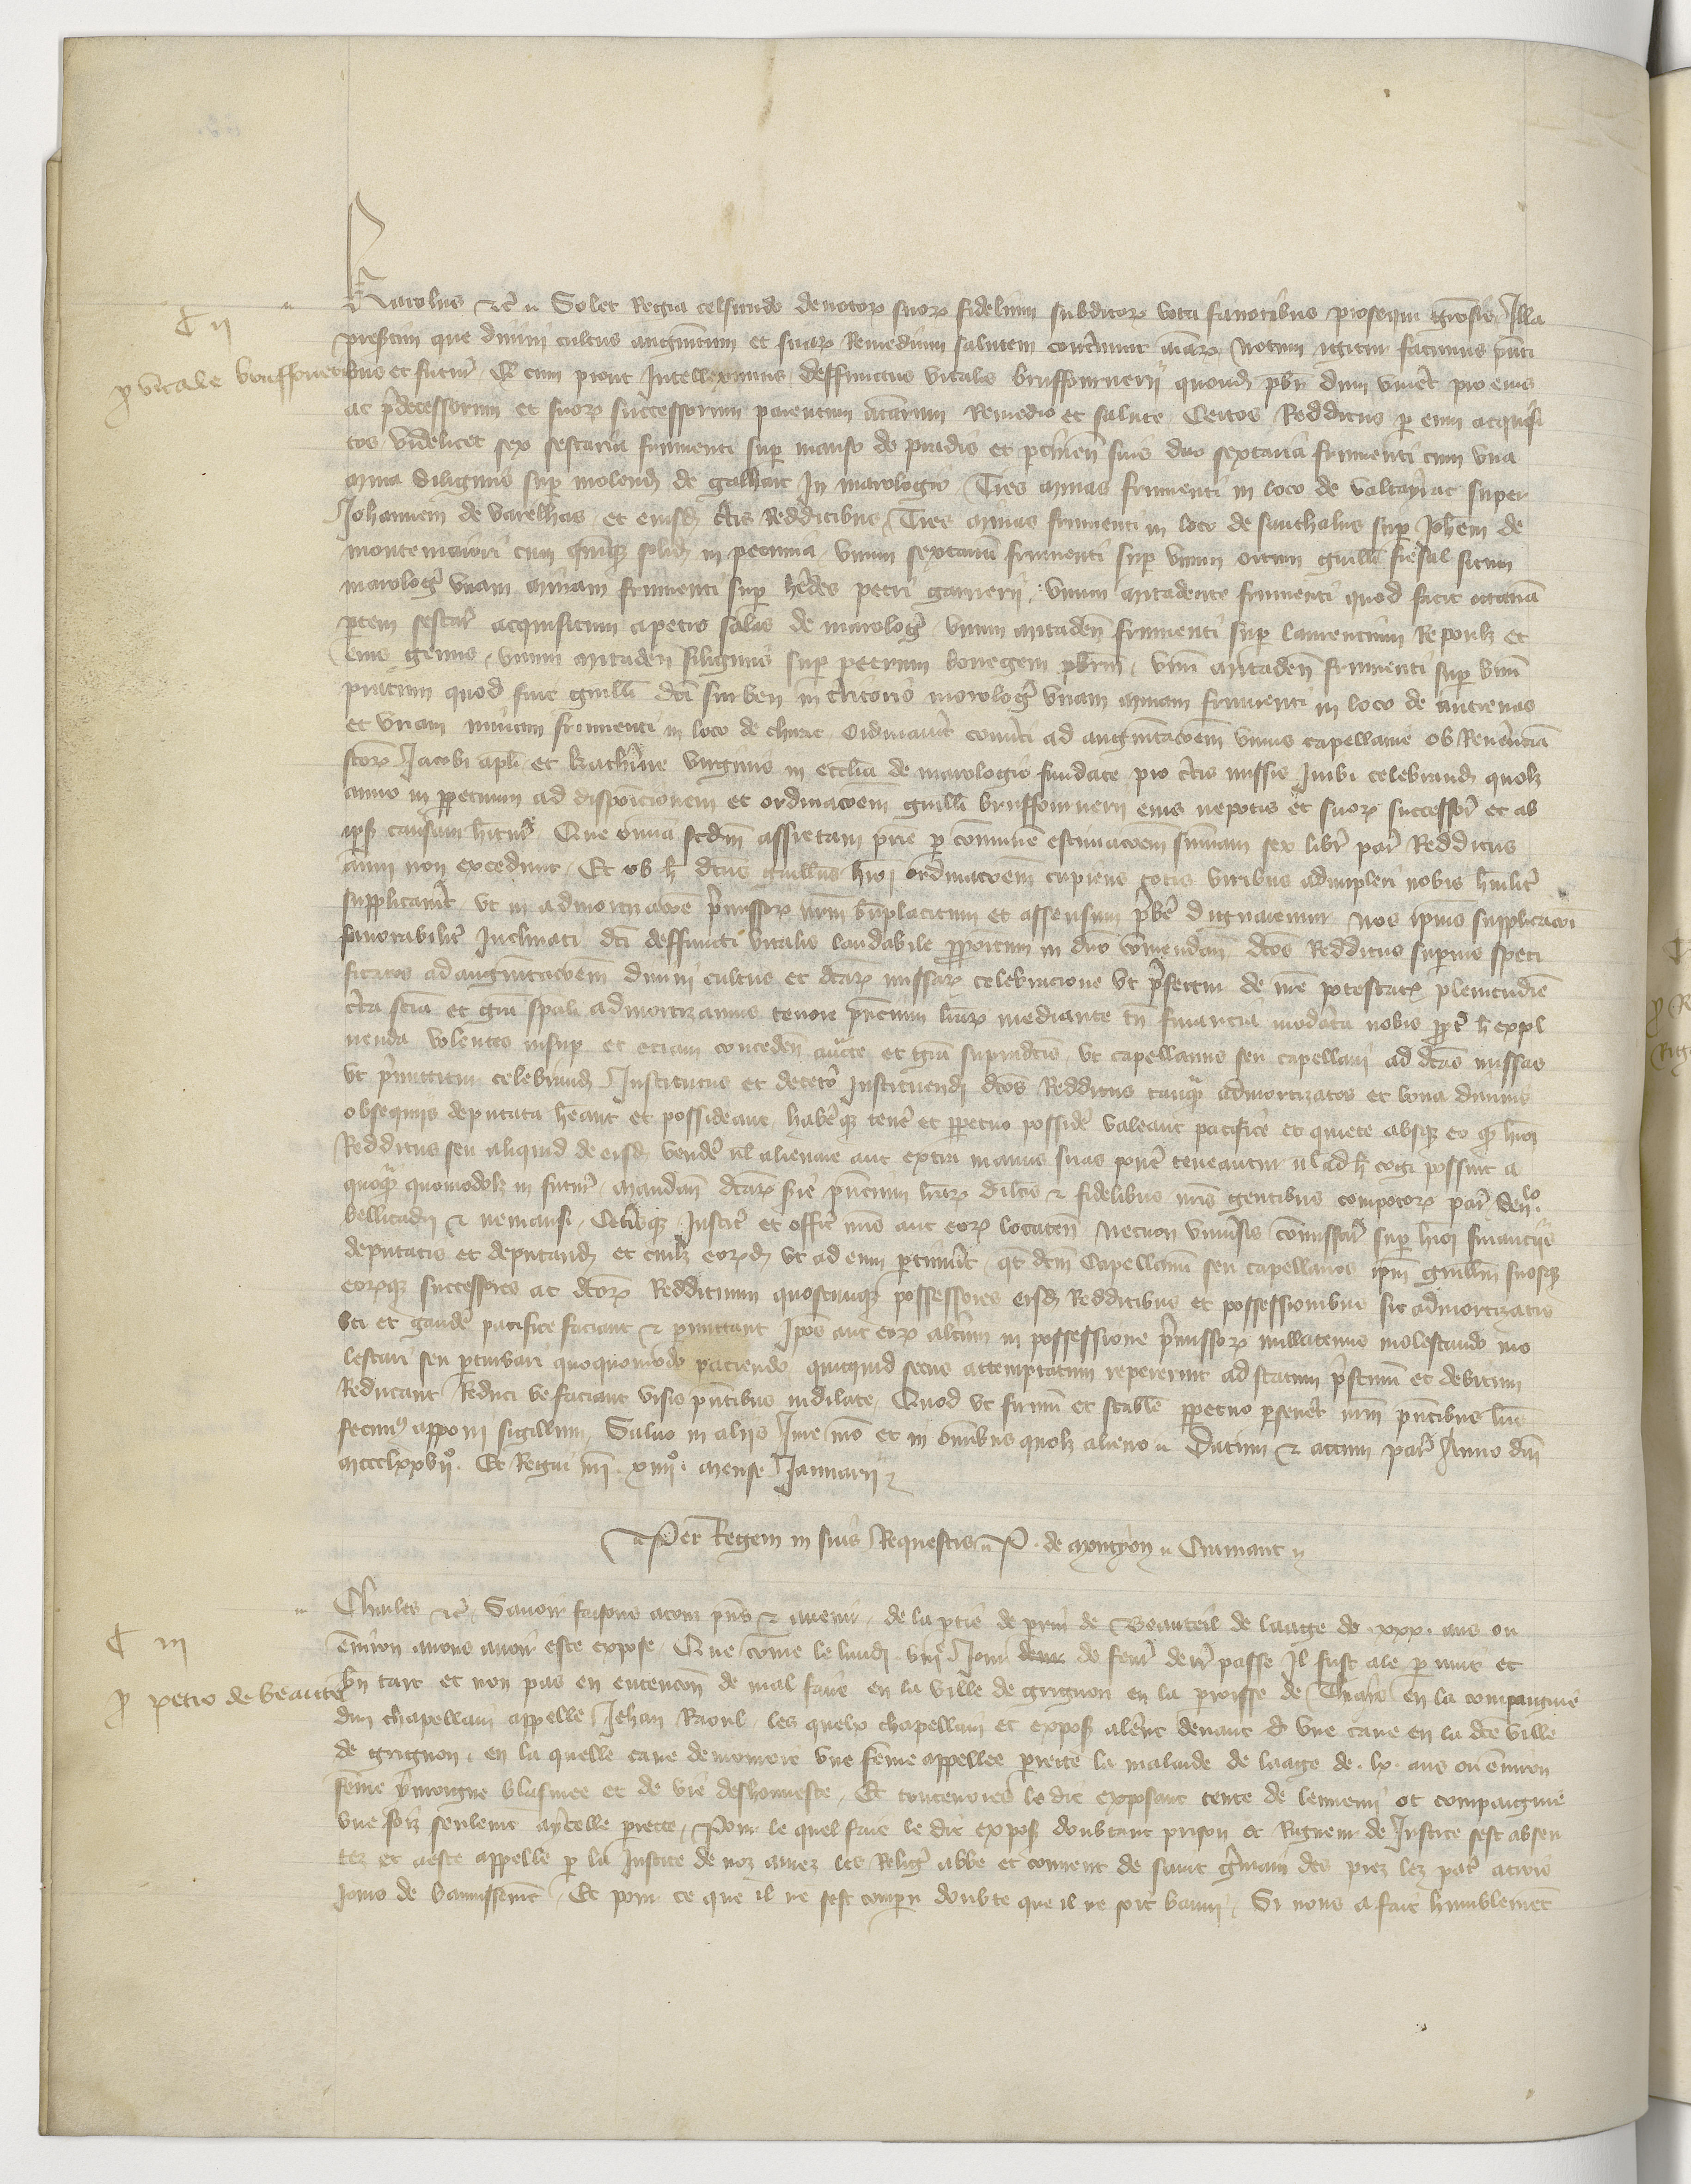 C II
pro vitale bruffonerii
Karolus etc. Solet Regia celsitudo devotor suor fidelium subditor vota favoribus prosequi graciosis Illa
presertim que divini cultus augmentum et suar Remedium salutem continent animar Notum igitur facimus presenti
bus et futuris Quod cum prout Intelleximus deffunctus vitalis bruffonnerii quond pbr dum viveret pro eius
ac predecessorum et suor successorum parentum animarum Remedio et salute Certos Redditus per eum acquisi
tos videlicet sex sestaria frumenti super manso de pradis et pertinen suis duo sextaria frumenti cum una
emina siliginis super molend de galhart In marologio Tres eminas frumenti in loco de valcayrac super
Johannem de varelhas et eiusd certis Redditibus Tres eminas frumenti in loco de sanchalus super Johem de
montemaiori cum quinque solid in pecunia unum sextarium frumenti super unum ortum guilli situm
marolog unam eminam frumenti super heredes petri garnerii unum cartadente frumenti quod facit octavam
partem sestar acquisitum a petro salas de marolog unum cartaden frumenti super laurentium et
eius genus unum cartaden siliginis super petrum pbrum unum cartaden frumenti super unum
pratum quod fuit guilli dci in territorio marolog unam eminam frumenti in loco de
et unam eminam frumenti in loco de Ordinaverit converti ad augmentacoem unius capellanie ob Reverenciam
sctor Jacobi apli et katherine virginis in ecclia de marologio fundate pro certis missis Inibi celebrand quolibet
anno in perpetuum ad disposicionem et ordinacoem guilli bruffonnerii eius nepotis et suor successor et ab
ipis causam hitur Que omnia scdm assietam patrie per communem estimacoem summam sex libr par Redditus
annui non excedunt Et ob hoc dcus guillus huiusmodi ordinacoem cupiens totis viribus adimpleri nobis humiliter
supplicaverit ut in admortizacoe premissor nrm beneplacitum et assensum prebere dignaremur Nos ipius supplicacoi
favorabiliter Inclinati dci deffuncti vitalis laudabile propositum in dno commendan dcos Redditus superius speci
ficatos ad augmentacoem divini cultus et dcar missar celebracione ut prefertur de nre potestatis plenitudine
certa scia et gra spali admortizamus tenore pncium lrar mediante tn financia moderata nobis propter hoc exsol
venda volentes insuper et eciam conceden aucte et gra supradictis ut capellanus seu capellani ad dcas missas
ut premittitur celebrand Institutus et decetero Instituendi dcos Redditus tanquam admortizatos et bona divinis
obsequiis deputata heant et possideant habereque tenere et perpetuo possidere valeant pacifice et quiete absque eo quod huiusmodi
Redditus seu aliquid de eisd vendere vel alienare aut extra manus suas ponere teneantur vel ad hoc cogi possint a
quoquam quomodolibet in futur Mandan dcar serie pncium lrar dilcis et fidelibus nris gentibus compotor par senllo
bellicadri et nemausi Ceterisque Justic et offic nris aut eor locaten necnon universis commissar super huiusmodi financiis
deputatis et deputand et cuilibet eord ut ad eum pertinuerit qt dcm Capellanum seu capellanos ipm guillm suosque
eorque successores ac dcor Reddituum quoscumque possessores eisd Redditibus et possessionibus sic admortizatis
uti et gaudere pacifice faciant et permittant Ipos aut eor alterum in possessione premissor nullatenus molestando mo
lestari seu perturbari quoquomodo paciendo quicquid secus attemptatum repererint ad statum pristinum et debitum
Reducant Reduci ve faciant visis pntibus indilate Quod ut firmum et stabile perpetuo perseveret nrm pntibus lris
fecimus apponi sigillum Salvo in aliis Jure nro et in omnibus quolibet alieno Datum et actum par Anno dni
mccclxxvii. Et Regni nri xiiii. mense Januarii
Per Regem in suis Requestis P. de montyon Crimaut
C III
pro petro de beauteil
Charles etc. Savoir faisons a touz pns et avenir de la ptie de prin de Beauteil de laage de xxx ans ou
environ avons avoir este expose Que comme le lundi VIIIe Jour de fevr derr passe Il fust ale par nuit et
bn tart et non pas en entencon de mal faire en la ville de grignon en la proisse de Thiais en la compaignie
dun chapellain appelle Jehan Raoul les quelx chapellain et expos alerent devant d une cave en la dce ville
de grignon en la quelle cave demouroit une feme appellee perrete la malaide de laage de lx ans ou environ
feme yvrongne blasmee et de vie deshonneste Et toutevoies le dit exposant tente de lennemi ot compaignie
une foiz seulemt aycelle perrete Pour le quel fait le dit expos doubtant prison et Rigueur de Justice sest absen
tez et a este appelle par la Justice de noz amez les Relig abbe et convent de saint germain des prez lez par a trois
jours de bannissemt Et pour ce que il ne sest comparu doubte que il ne soit banni Si nous a fait humblement